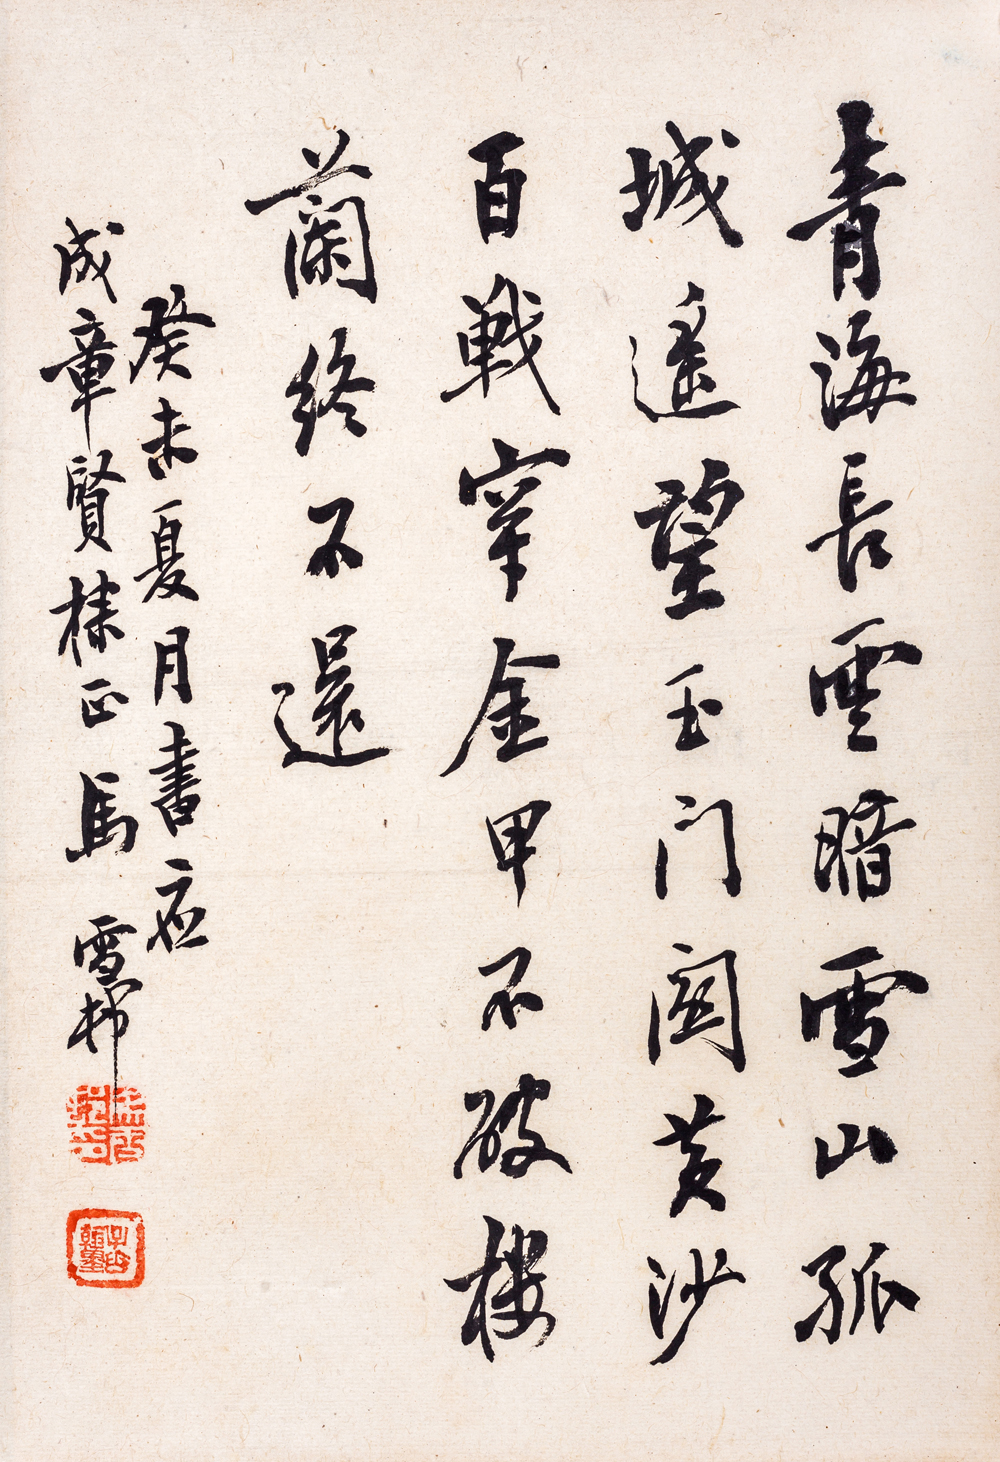 青海長雲暗雪山孤
城遙望玉門關黃沙
百戰穿金甲不破樓
蘭終不還
癸未夏月書應
成章賢棣正 馬雪